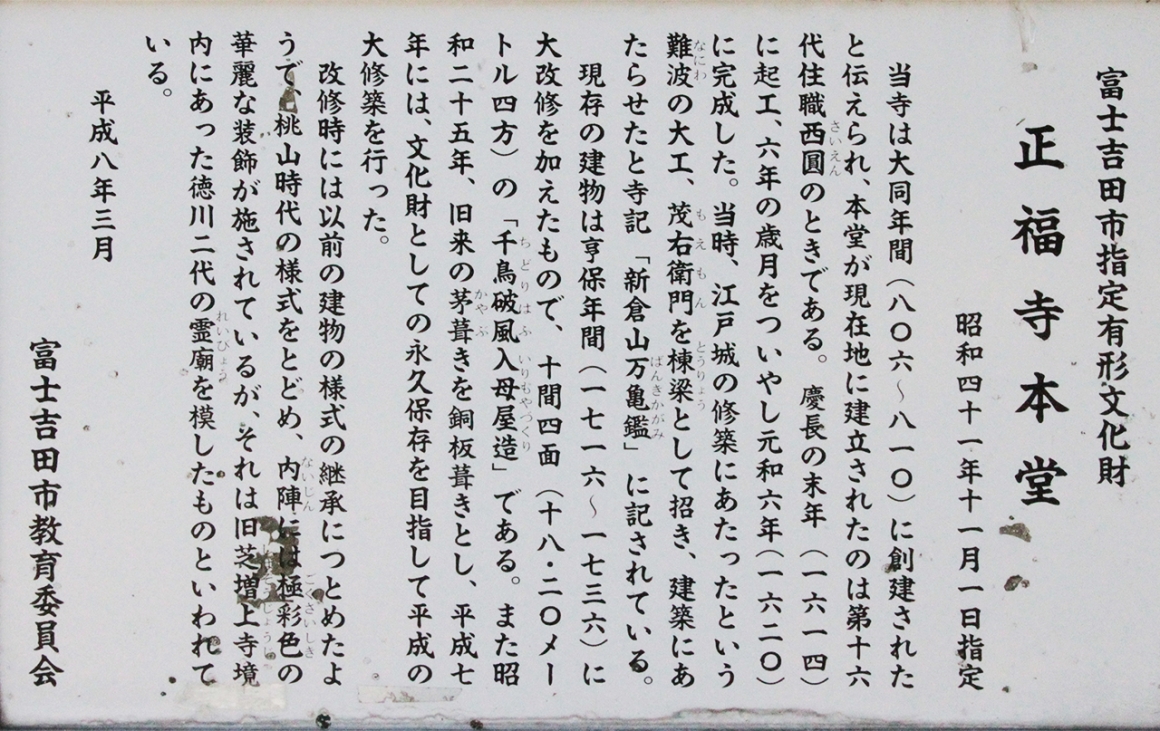 富士吉田市指定有形文化財
正福寺本堂
昭和四十一年十一月一日指定
当寺は大同年間（八〇六～八一〇）に創建された
と伝えられ、本堂が現在地に建立されたのは第十六
代住職西圓のときである。慶長の末年（一六一四）
に起工、六年の歳月をついやし元和六年（一六二〇）
に完成した。当時、江戸城の修築にあたったという
難波の大工、茂右衛門を棟梁として招き、建築にあ
たらせたと寺記「新倉山万亀鑑」に記されている。
現存の建物は享保年間（一七一六～一七三六）に
大改修を加えたもので、十間四面（十八・二〇メー
トル四方）の「千鳥破風入母屋造」である。また昭
和二十五年、旧来の茅葺きを銅板葺きとし、平成七
年には、文化財としての永久保存を目指して平成の
大修築を行った。
改修時には以前の建物の様式の継承につとめたよ
うで、桃山時代の様式をとどめ、内陣には極彩色の
華麗な装飾が施されているが、それは旧芝増上寺境
内にあった徳川二代の霊廟を模したものといわれて
いる。
平成八年三月
富士吉田市教育委員会